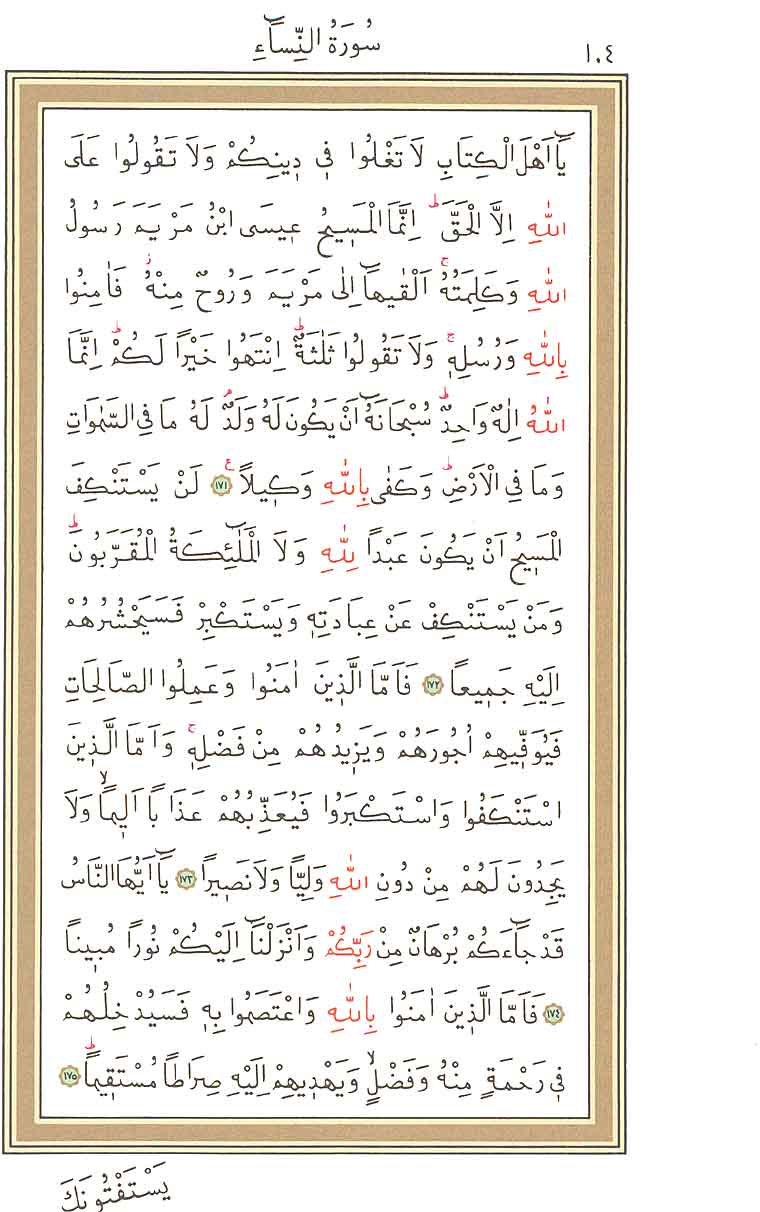 ١٠٤
سُورَةُ النِّسَٓاءِ
يَٓا اَهْلَ الْكِتَابِ لَا تَغْلُوا فٖى دٖينِكُمْ وَلَا تَقُولُوا عَلَى
اللّٰهِ اِلَّا الْحَقَّؕ اِنَّمَا الْمَسٖيحُ عٖيسَى ابْنُ مَرْيَمَ رَسُولُ
اللّٰهِ وَكَلِمَتُهُۚ اَلْقٰيهَٓا اِلٰى مَرْيَمَ وَرُوحٌ مِنْهُؗ فَاٰمِنُوا
بِاللّٰهِ وَرُسُلِهٖۚ وَلَا تَقُولُوا ثَلٰثَةٌؕ اِنْتَهُوا خَيْرًا لَكُمْؕ اِنَّمَا
اللّٰهُ اِلٰهٌ وَاحِدٌؕ سُبْحَانَهُٓ اَنْ يَكُونَ لَهُ وَلَدٌۘ لَهُ مَا فِى السَّمٰوَاتِ
وَمَا فِى الْاَرْضِؕ وَكَفٰى بِاللّٰهِ وَكٖيلًا ﴿١٧١﴾ لَنْ يَسْتَنْكِفَ
الْمَسٖيحُ اَنْ يَكُونَ عَبْدًا لِلّٰهِ وَلَا الْمَلٰٓئِكَةُ الْمُقَرَّبُونَؕ
وَمَنْ يَسْتَنْكِفْ عَنْ عِبَادَتِهٖ وَيَسْتَكْبِرْ فَسَيَحْشُرُهُمْ
اِلَيْهِ جَمٖيعًا ﴿١٧٢﴾ فَاَمَّا الَّذٖينَ اٰمَنُوا وَعَمِلُوا الصَّالِحَاتِ
فَيُوَفّٖيهِمْ اُجُورَهُمْ وَيَزٖيدُهُمْ مِنْ فَضْلِهٖۚ وَاَمَّا الَّذٖينَ
اسْتَنْكَفُوا وَاسْتَكْبَرُوا فَيُعَذِّبُهُمْ عَذَابًا اَلٖيمًاۙ وَلَا
يَجِدُونَ لَهُمْ مِنْ دُونِ اللّٰهِ وَلِيًّا وَلَا نَصٖيرًا ﴿١٧٣﴾ يَٓا اَيُّهَا النَّاسُ
قَدْ جَٓاءَكُمْ بُرْهَانٌ مِنْ رَبِّكُمْ وَاَنْزَلْنَٓا اِلَيْكُمْ نُورًا مُبٖينًا
﴿١٧٤﴾ فَاَمَّا الَّذٖينَ اٰمَنُوا بِاللّٰهِ وَاعْتَصَمُوا بِهٖ فَسَيُدْخِلُهُمْ
فٖى رَحْمَةٍ مِنْهُ وَفَضْلٍۙ وَيَهْدٖيهِمْ اِلَيْهِ صِرَاطًا مُسْتَقٖيمًاؕ ﴿١٧٥﴾
يَسْتَفْتُونَكَ